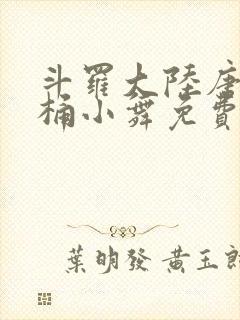 斗羅大陸唐
桶小舞免費
葉明發 黃玉郎